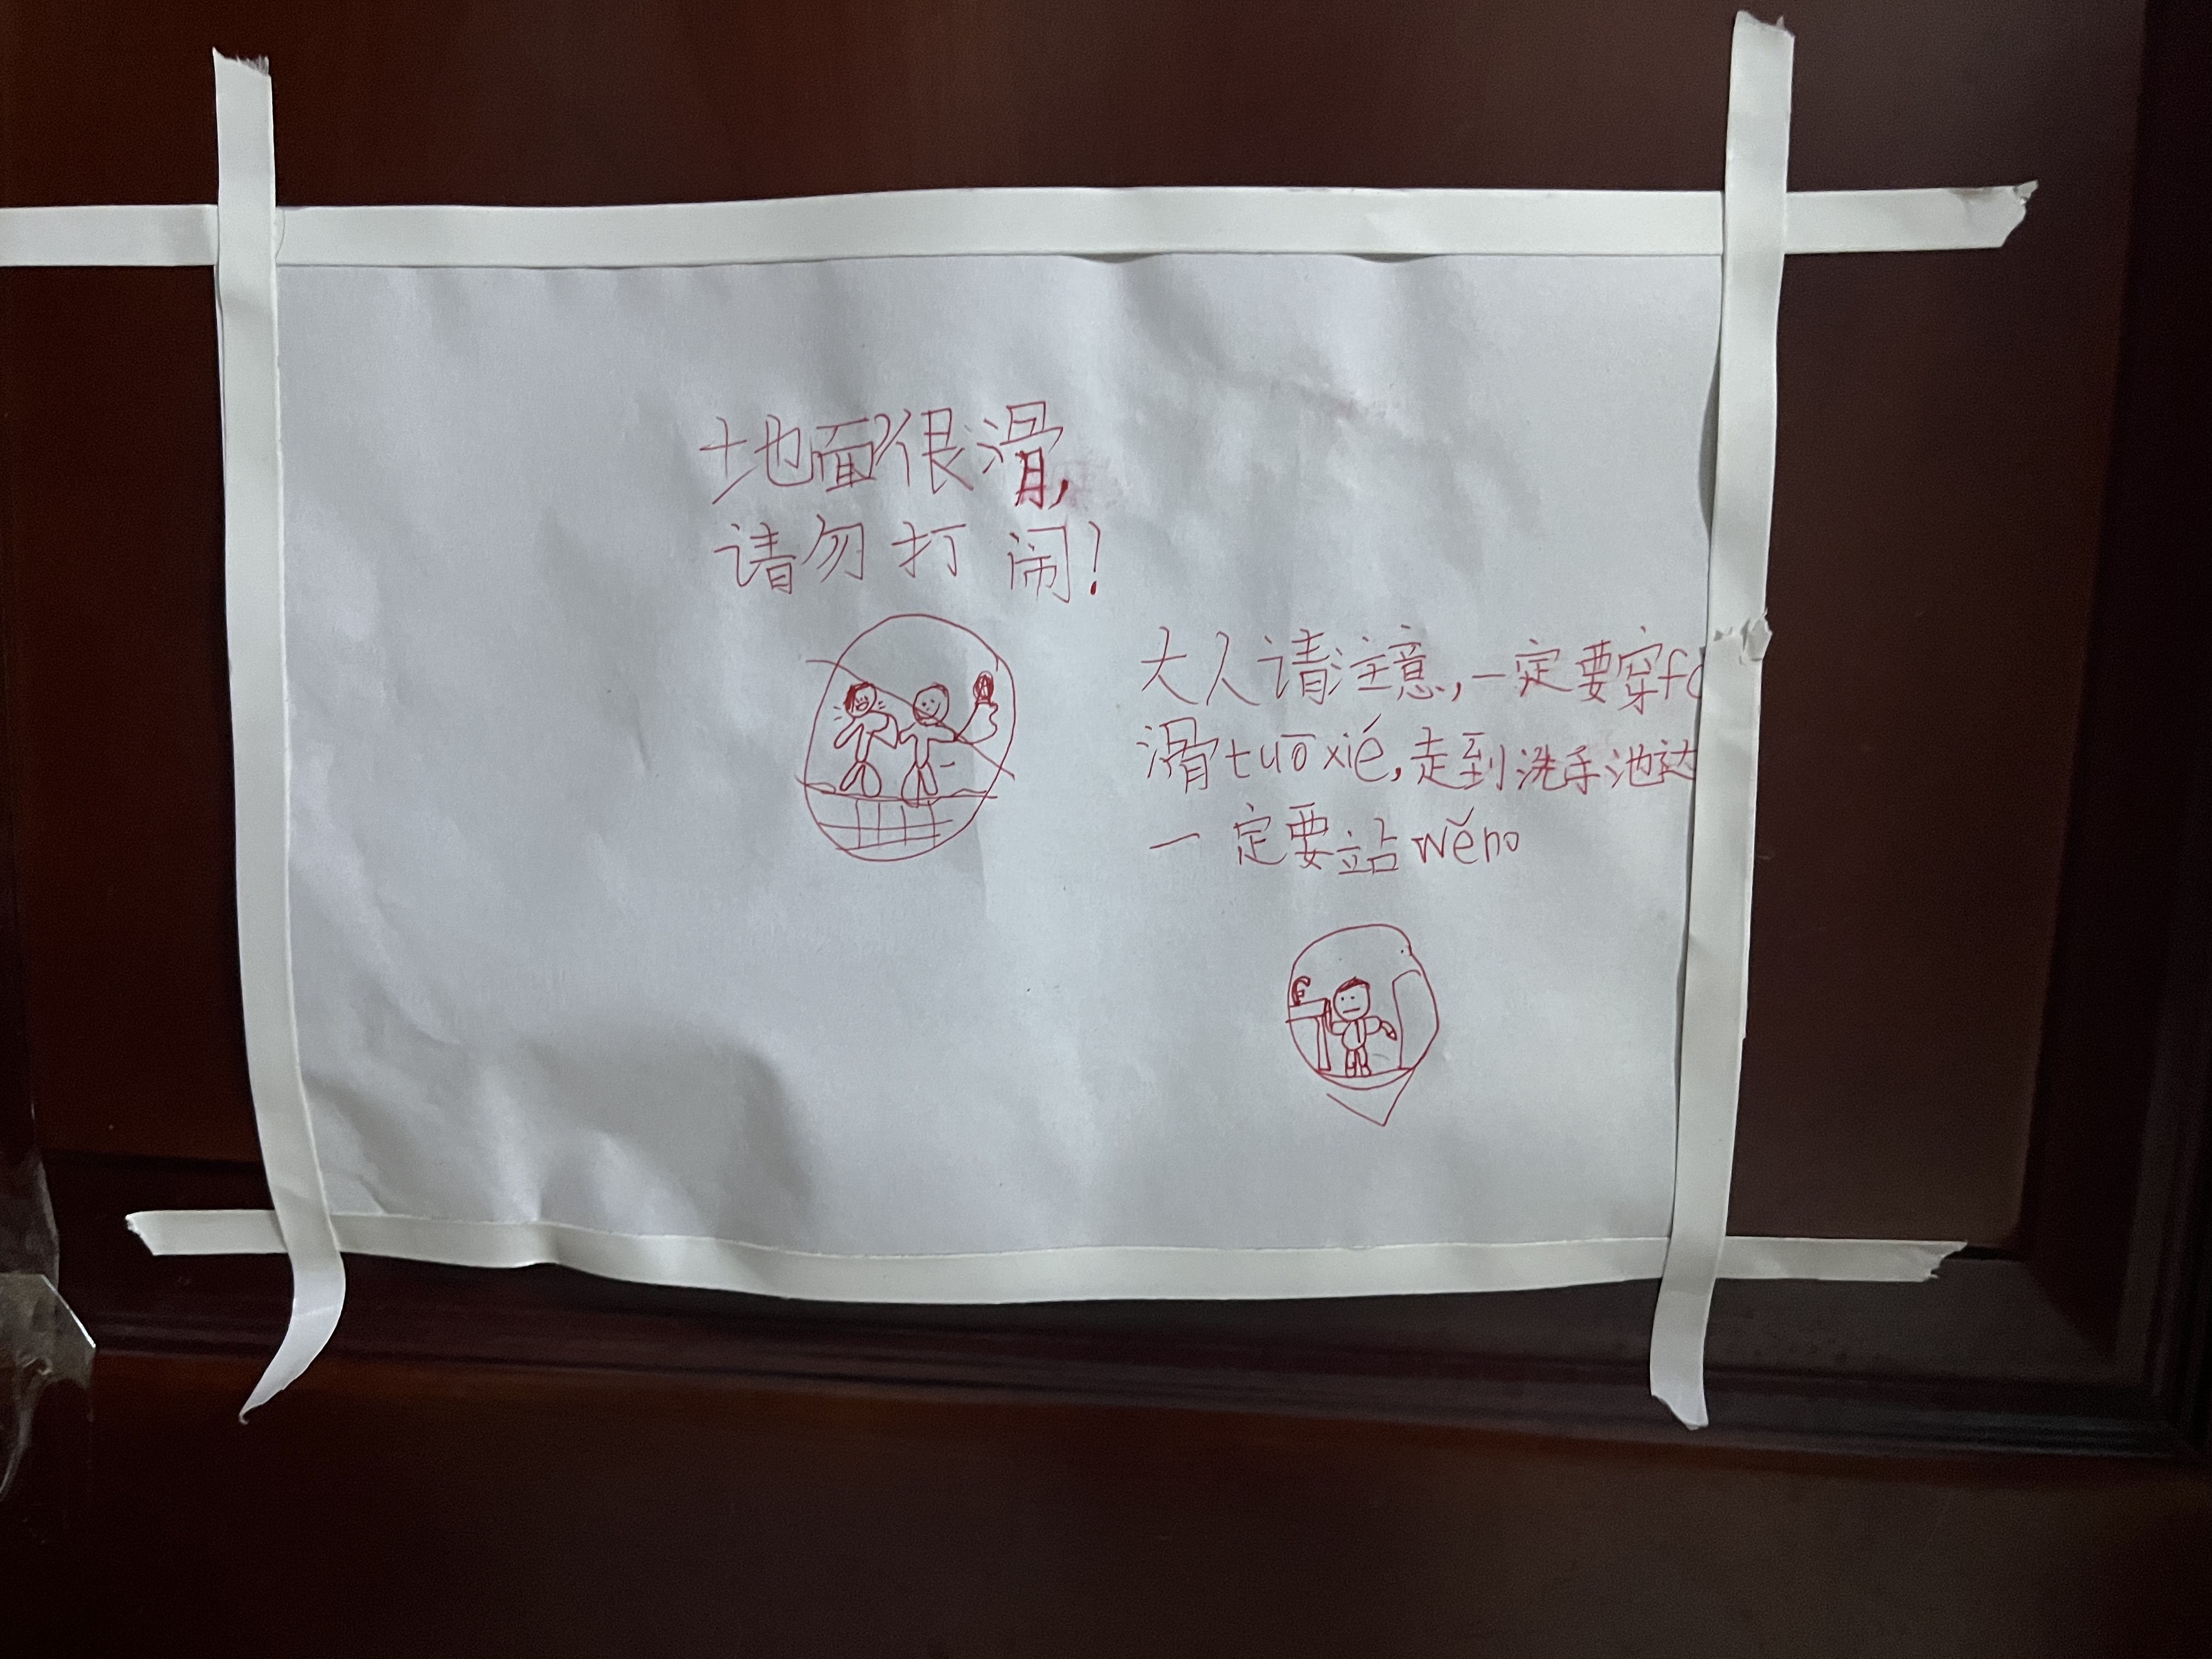 地面很滑,
请勿打闹!
大人请注意,一定要穿f
滑tuō xié,走到洗手池
一定要站wěn。